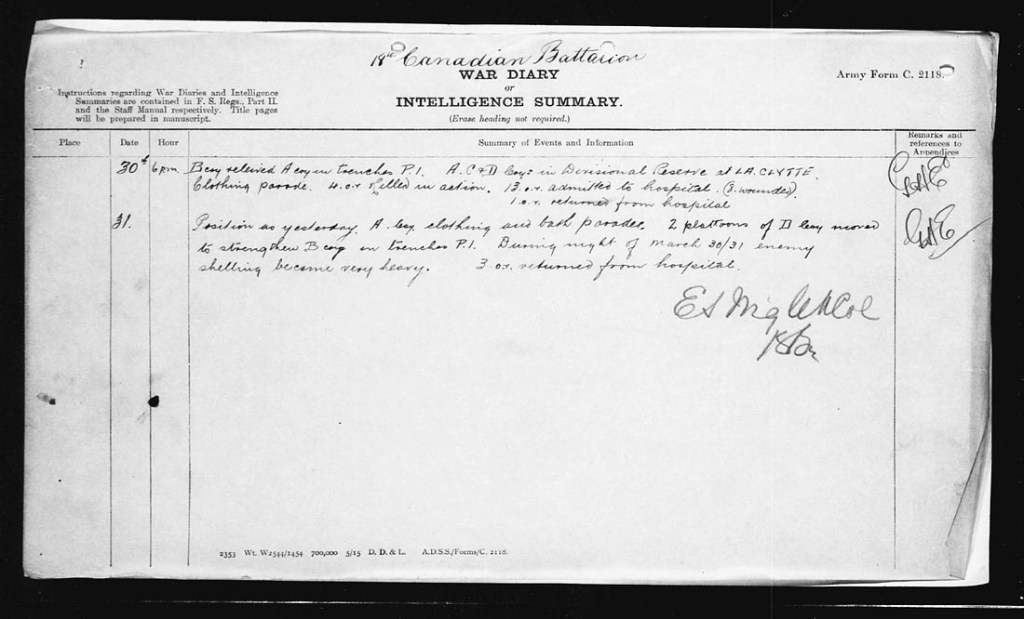 18th Canadian Battalion
WAR DIARY
or
INTELLIGENCE SUMMARY.
(Erase heading not required.)
Army Form C. 2118.
Instructions regarding War Diaries and Intelligence
Summaries are contained in F. S. Regs., Part II.
and the Staff Manual respectively. Title pages
will be prepared in manuscript.
Place Date Hour Summary of Events and Information Remarks and
references to
Appendices
30th 6 p.m. B coy relieved A coy in trenches P.1. A. C & D Coys in Divisional Reserve at LA. CLYTTE.
Clothing parade. 4. o.r. killed in action. 13 o.r. admitted to hospital. (3. wounded).
1. o.r. returned from hospital
31. Position as yesterday. A. Coy. clothing and bath parades. 2 plattoons of D Coy moved
to strengthen B coy in trenches P.1. During night of March 30/31 enemy
shelling became very heavy. 3 o.r. returned from hospital.
2353 Wt. W2544/1454 700,000 5/15 D. D. & L. A.D.S.S./Forms/C. 2118.